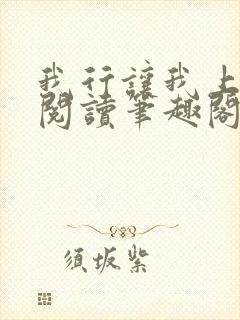 我行讓我上
閱讀筆趣閣
須坂紫